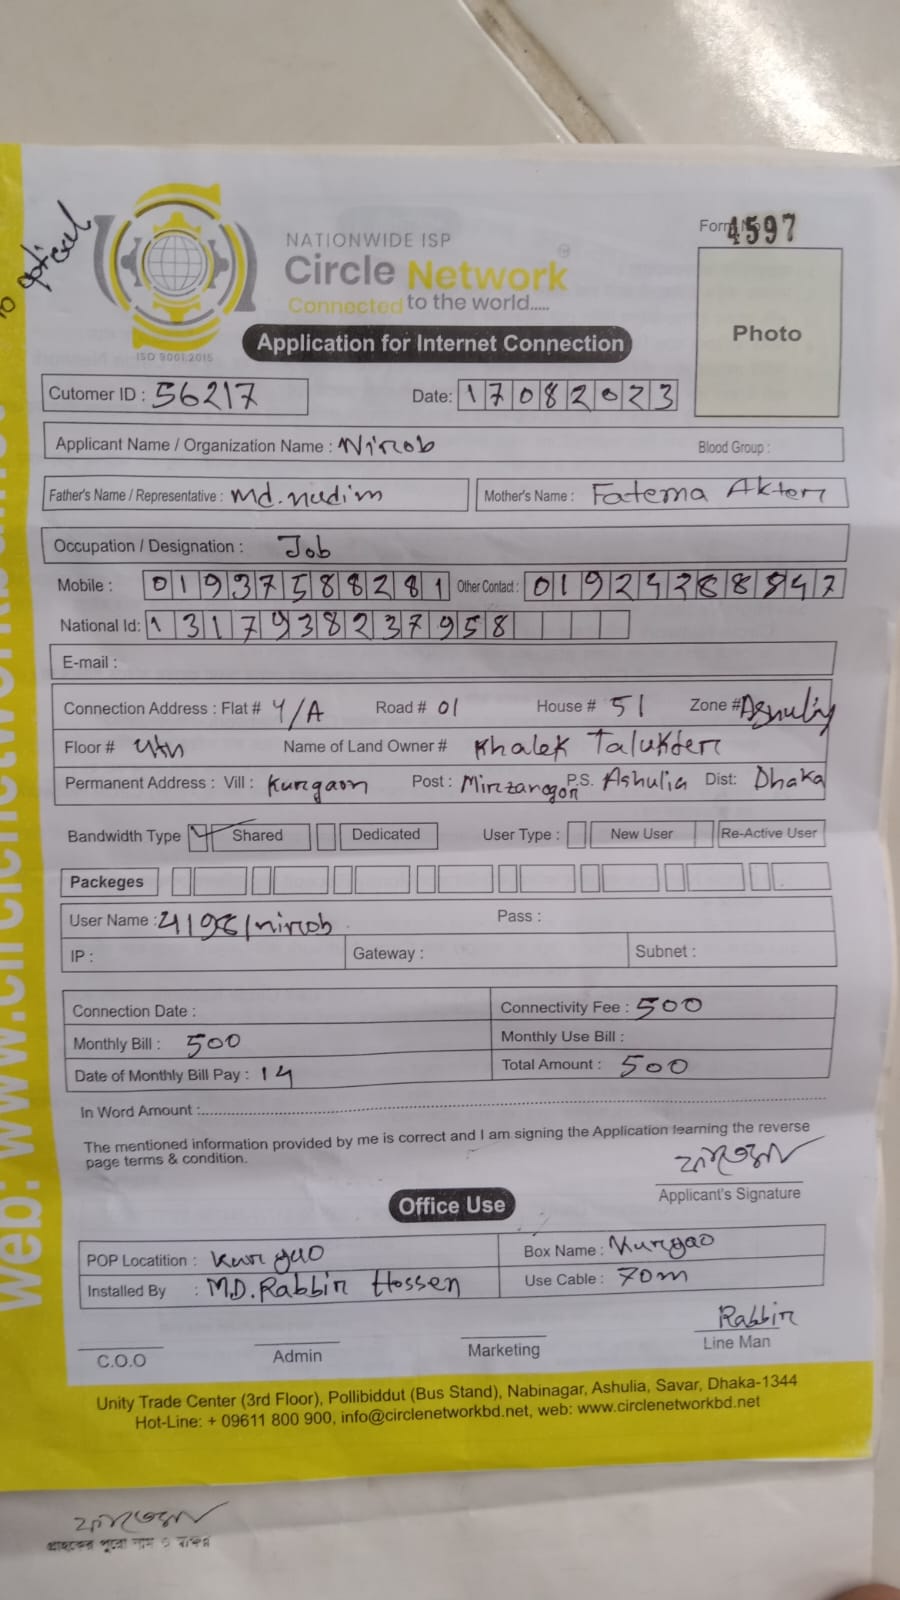 optical
NATIONWIDE ISP
Circle Network
Connected to the world.....
ISO 9001:2015
Form No 4597
Photo
Application for Internet Connection
Cutomer ID : 56217
Date: 17082023
Applicant Name / Organization Name : Nirob
Blood Group :
Father's Name / Representative : Md. nudim
Mother's Name : Fatema Akter
Occupation / Designation : Job
Mobile : 01937588281 Other Contact : 01924288847
National Id: 1317938237958
E-mail :
Connection Address : Flat # 4/A Road # 01 House # 51 Zone # Ashulia
Floor # 4th Name of Land Owner # Khalek Talukder
Permanent Address : Vill : Kurgaon Post : Mirzanagor P.S. Ashulia Dist: Dhaka
Bandwidth Type ✓ Shared Dedicated User Type : New User Re-Active User
Packeges
User Name : 4198/nirob Pass :
IP : Gateway : Subnet :
Connection Date : Connectivity Fee : 500
Monthly Bill : 500 Monthly Use Bill :
Date of Monthly Bill Pay : 14 Total Amount : 500
In Word Amount :
The mentioned information provided by me is correct and I am signing the Application learning the reverse
page terms & condition.
Applicant's Signature
Office Use
POP Locatition : Kurgao Box Name : Kurgao
Installed By : M.D. Rabbir Hossen Use Cable : 70m
Rabbir
C.O.O Admin Marketing Line Man
Unity Trade Center (3rd Floor), Pollibiddut (Bus Stand), Nabinagar, Ashulia, Savar, Dhaka-1344
Hot-Line: + 09611 800 900, info@circlenetworkbd.net, web: www.circlenetworkbd.net
গ্রাহকের পুরো নাম ও স্বাক্ষর
web: www.circlenetworkbd.net